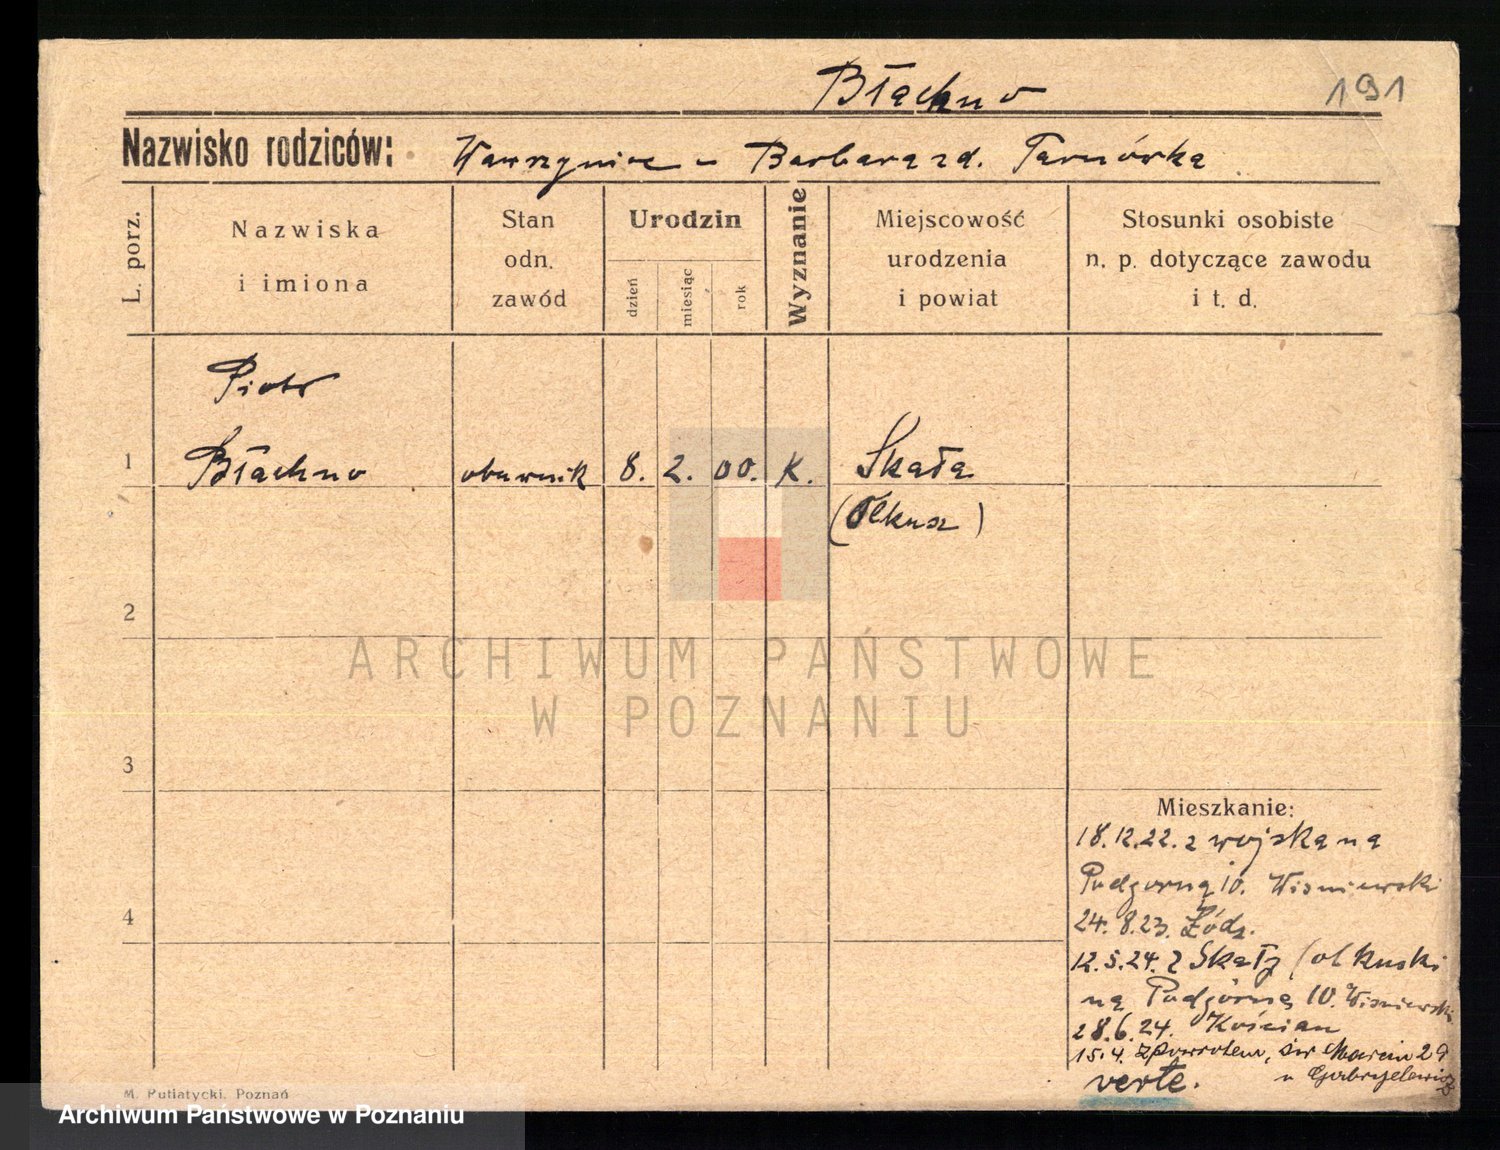 Błachno 191
Nazwisko rodziców: Wawrzyniec - Barbara zd. Tarnówka
L. porz.
Nazwiska
i imiona
Stan
odn.
zawód
Urodzin
dzień
miesiąc
rok
Wyznanie
Miejscowość
urodzenia
i powiat
Stosunki osobiste
n. p. dotyczące zawodu
i t. d.
Piotr
1 Błachno obuwnik 8. 2. 00. K. Skała
(Olkusz)
2
3
4
Mieszkanie:
18.12.22. z wojska na
Podgórną 10. Wisniewski
24.8.23. Łódz.
12.5.24. z Skały (olkuski
na Podgórnę 10. Wisniewski
28.6.24. Kościan
15.4. zpowrotem, św Marcin 29
u Gabryelewicz
verte.
M. Putiatycki, Poznań
ARCHIWUM PAŃSTWOWE
W POZNANIU
Archiwum Państwowe w Poznaniu